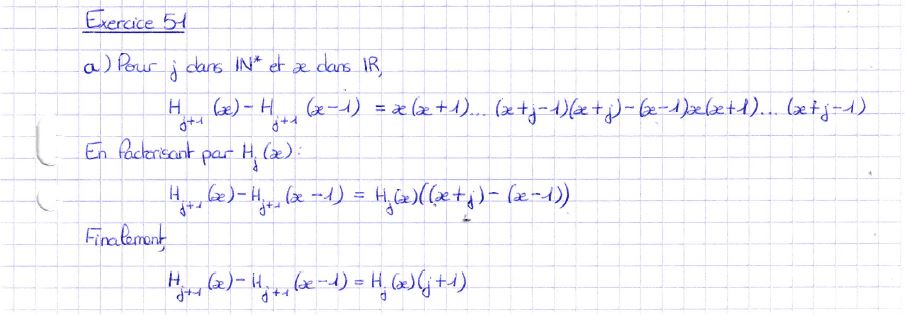 Exercice 51
a) Pour j dans IN* et x dans IR,
H_{j+1}(x) - H_{j+1}(x-1) = x(x+1)...(x+j-1)(x+j) - (x-1)x(x+1)...(x+j-1)
En factorisant par H_j(x):
H_{j+1}(x) - H_{j+1}(x-1) = H_j(x)((x+j) - (x-1))
Finalement,
H_{j+1}(x) - H_{j+1}(x-1) = H_j(x)(j+1)